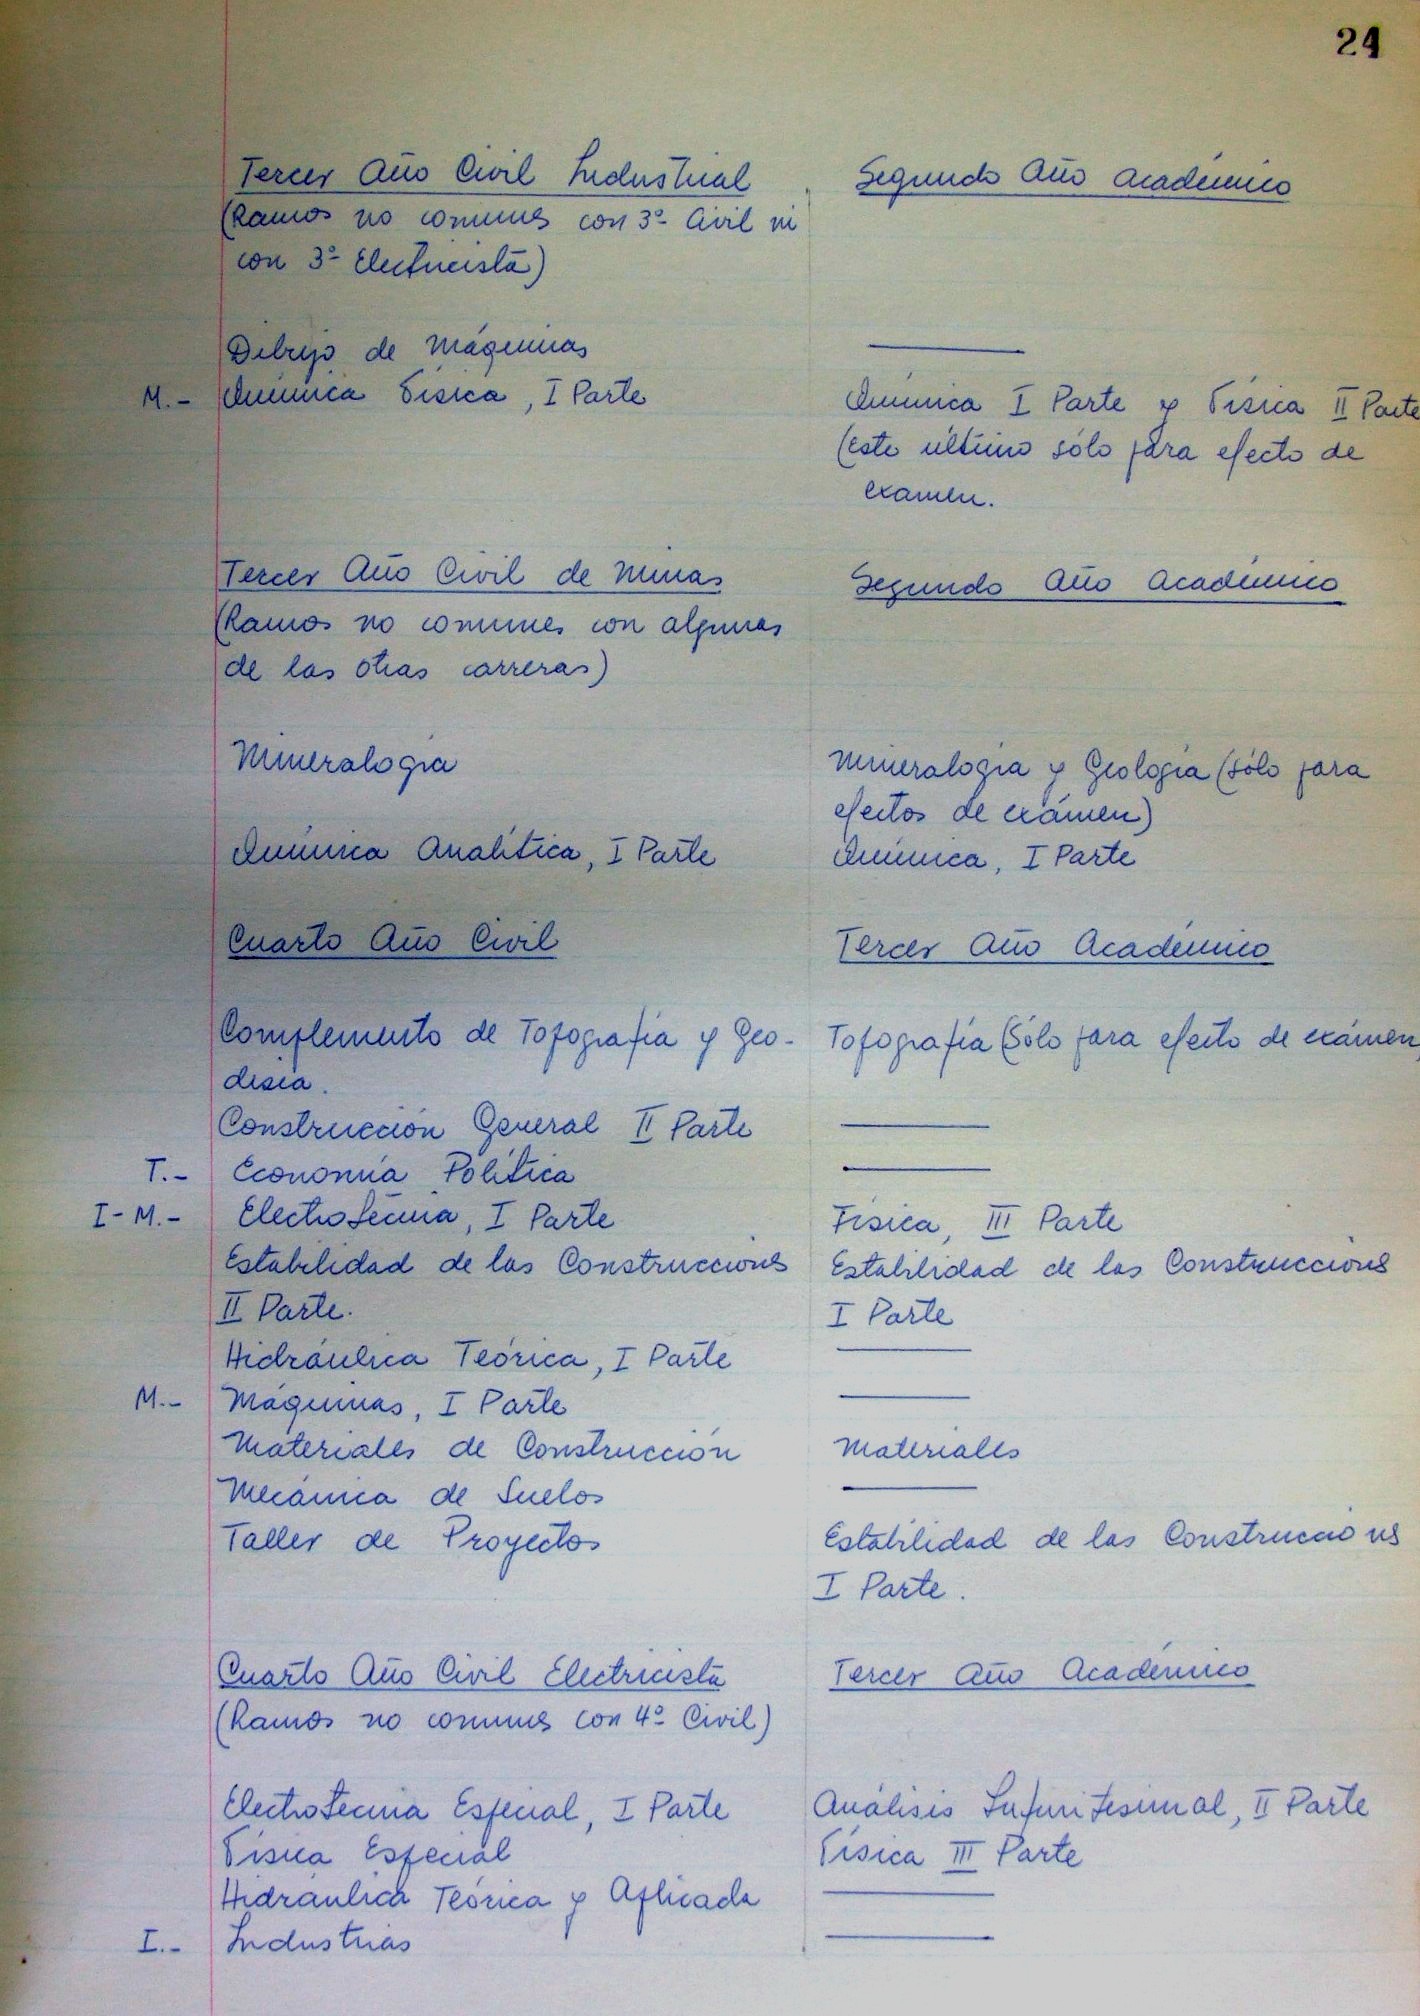 24
Tercer Año Civil Industrial Segundo Año Académico
(Ramos no comunes con 3º Civil ni
con 3º Electricista)
Dibujo de Máquinas
M.- Química Física, I Parte Química I Parte y Física II Parte
(Este último sólo para efecto de
examen.
Tercer Año Civil de Minas Segundo Año Académico
(Ramos no comunes con algunas
de las otras carreras)
Mineralogía Mineralogía y Geología (sólo para
efectos de exámen)
Química Analítica, I Parte Química, I Parte
Cuarto Año Civil Tercer Año Académico
Complemento de Topografía y Geo- Topografía (Sólo para efecto de exámen)
desia.
Construcción General II Parte
T.- Economía Política
I-M.- Electrotecnia, I Parte Física, III Parte
Estabilidad de las Construcciones Estabilidad de las Construcciones
II Parte. I Parte
Hidráulica Teórica, I Parte
M.- Máquinas, I Parte
Materiales de Construcción Materiales
Mecánica de Suelos
Taller de Proyectos Estabilidad de las Construcciones
I Parte.
Cuarto Año Civil Electricista Tercer Año Académico
(Ramos no comunes con 4º Civil)
Electrotecnia Especial, I Parte Análisis Infinitesimal, II Parte
Física Especial Física III Parte
Hidráulica Teórica y Aplicada
I.- Industrias